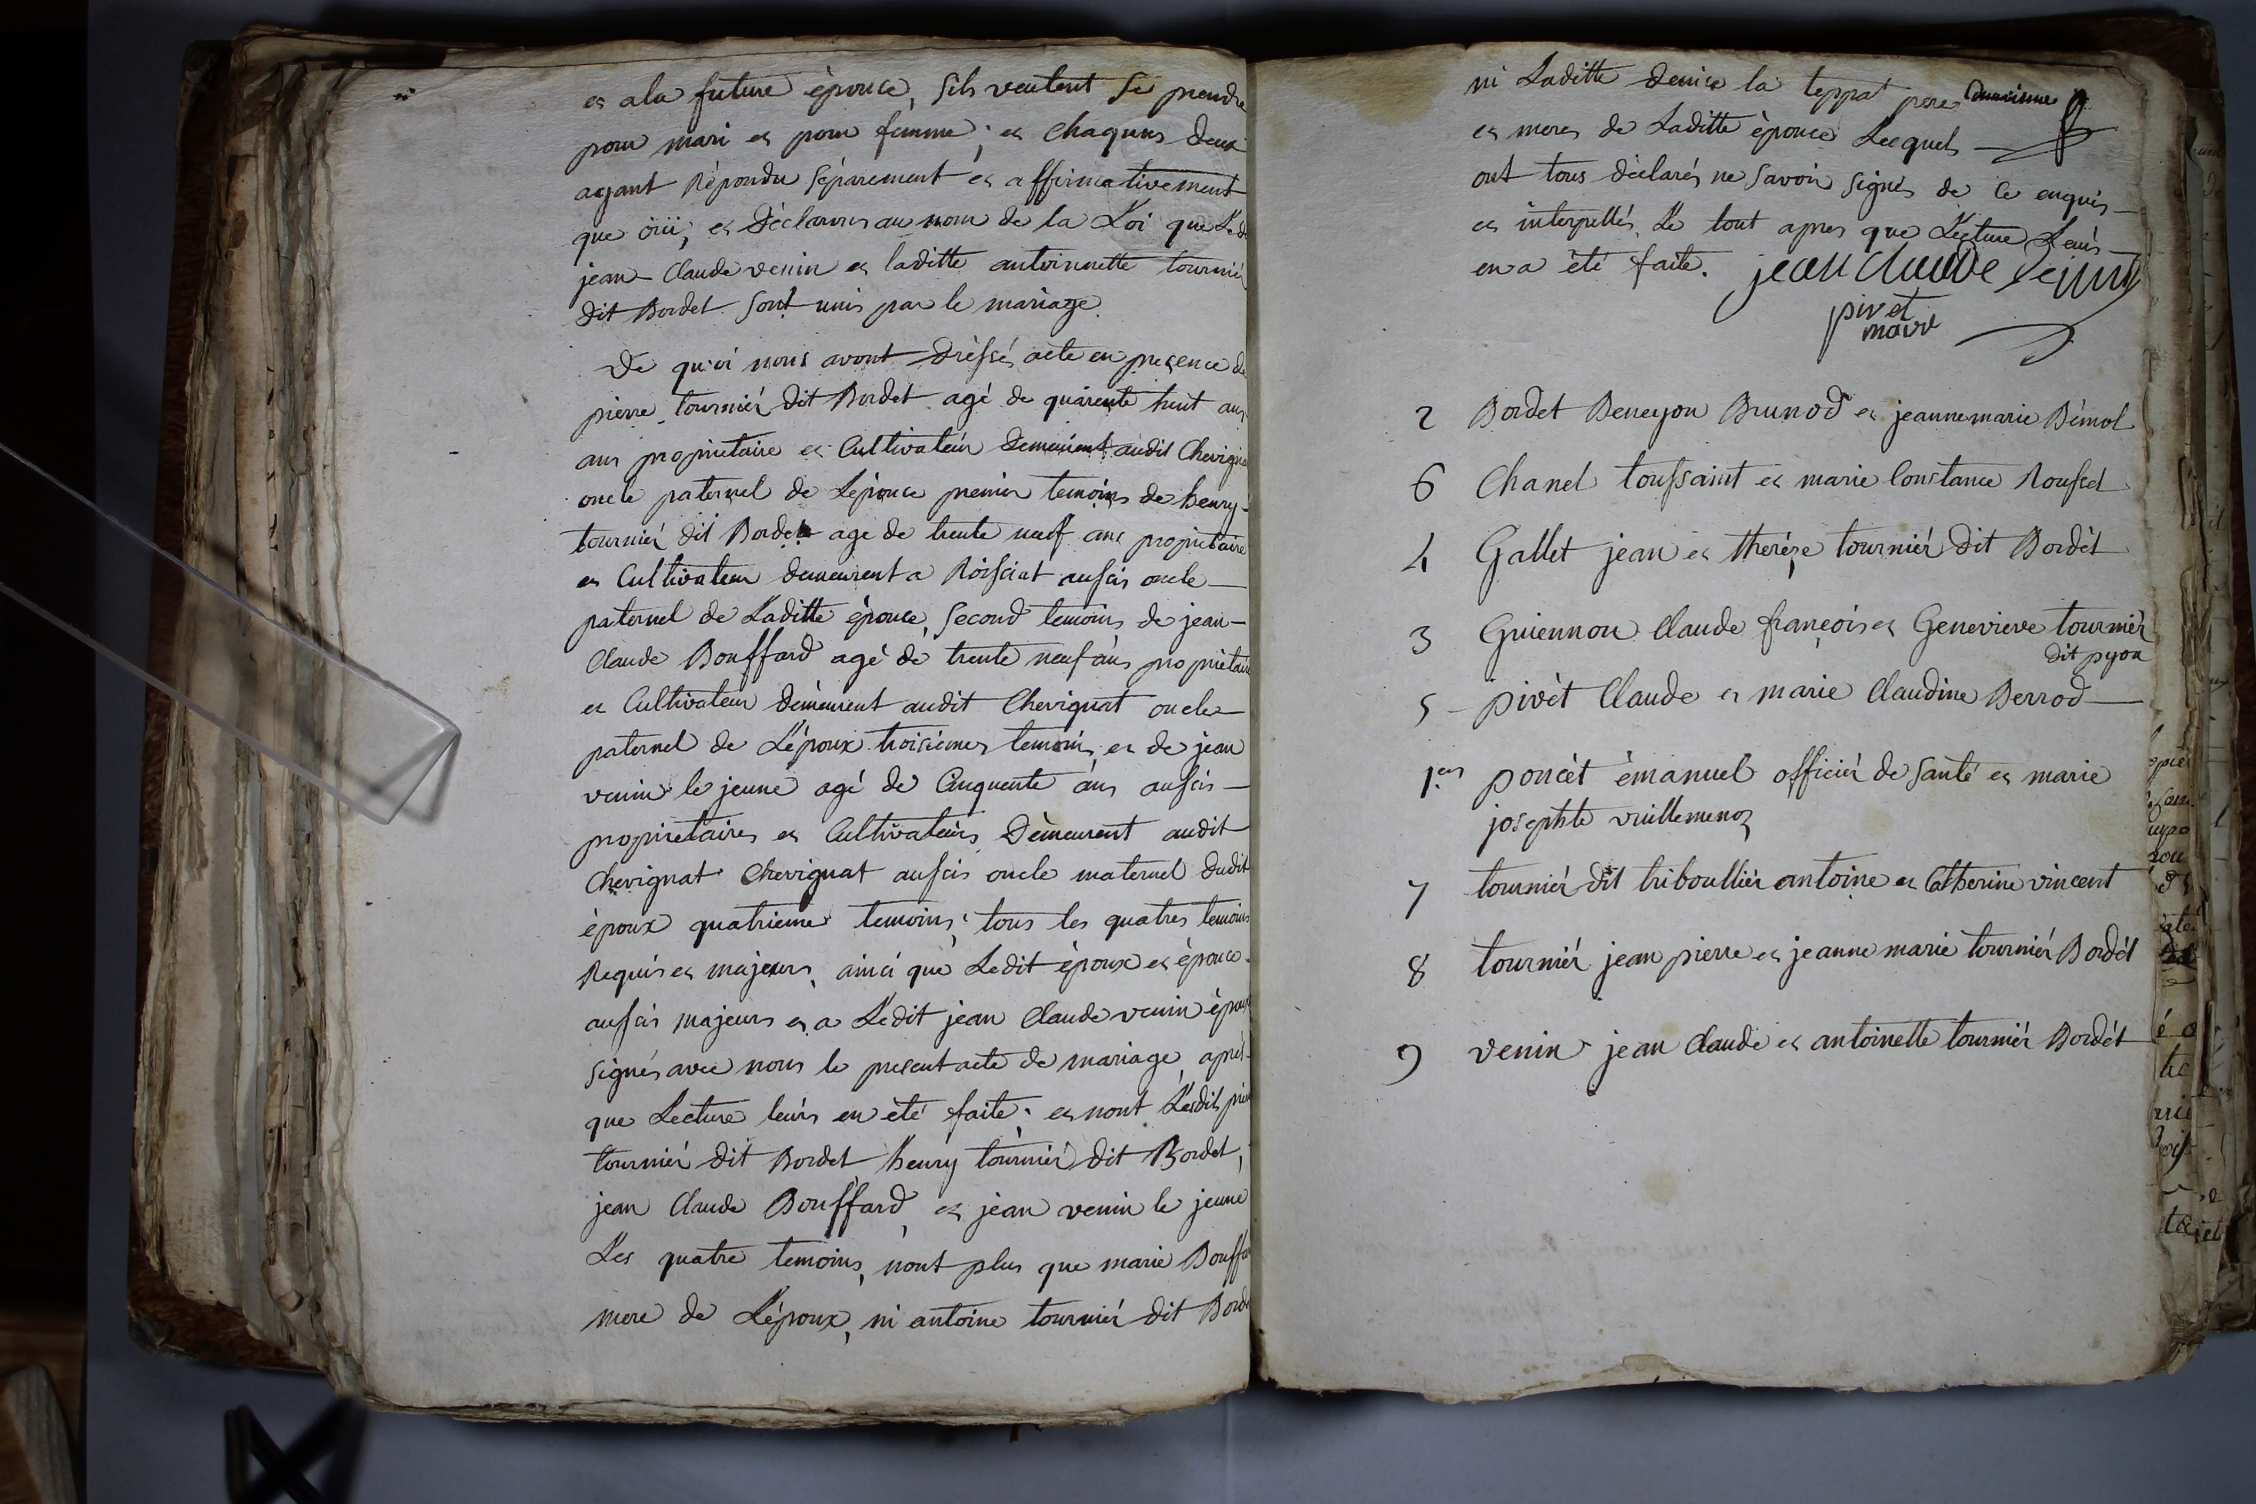 et ala future épouce, sils veulent se prendre
pour mari et pour femme; et chaquns deux
ayant Répondu séparement et affirmativement
que öüi; et Déclarons au nom de la Loi que Le d
jean Claude venin et laditte antoinnette tournié
dit Bordet sont unis par le mariage.
De qu'oi nous avont dréssé acte en presence de
pierre tourniér dit Bordet agé de quarente huit ans
ans proprietaire et Cultivateur demeurent audit Chevigna
oncle paternel de Lépouce premier temoins de henry
tourniér dit Bordet age de trente neuf ans proprietaire
et Cultivateur demeurent a Roissiat aussis oncle
paternel de Laditte épouce, second temoins de jean
Claude Bouffard agé de trente neuf ans proprietaire
et Cultivateur démeurent audit Chevignat oncle
paternel de Lépoux troisiemes temoins et de jean
venin le jeune agé de Cinquente ans aussis
proprietaires et Cultivateurs Démeurent audit
Chevignat Chevignat aussis oncle maternel dudit
époux quatrieme temoins; tous les quatres temoins
Requis et majeurs, ainci que Ledit époux et épouce
aussis majeurs et a Ledit jean Claude venin époux
signés avec nous le present acte de mariage aprés
que Lecture leurs en été faite; et nont Lesdits pier
tourniér dit Bordet henry tourniér dit Bordet,
jean Claude Bouffard, et jean venin le jeune
Les quatre temoins, nont plus que marie Bouffa
mere de Lépoux, ni antoine tourniér dit Borde
ni Laditte denise la teppat peres
et meres de Laditte épouce Lesquels
ont tous déclarés ne savoir signés de ce enquis
et interpellés, Le tout apres que Lecture Leurs
en a été faite. jean claude venin
pivet
maire
2 Bordet Beneyon Brunod et jeannemarie Bémol
6 Chanel toussaint et marie Constance Roussel
4 Gallet jean et theréze tourniér dit Bordét
3 Guiennon Claude françois et Genevieve tourniér
dit pyon
5 pivét Claude et marie Claudine Berrod
1.er poncèt émanuel officiér de santé et marie
josephte vuillemenoz
7 tourniér dit triboulliér antoine et Catherine vincent
8 tourniér jean pierre et jeanne marie tourniér Bordét
9 venin jean Claude et antoinette tourniér Bordét